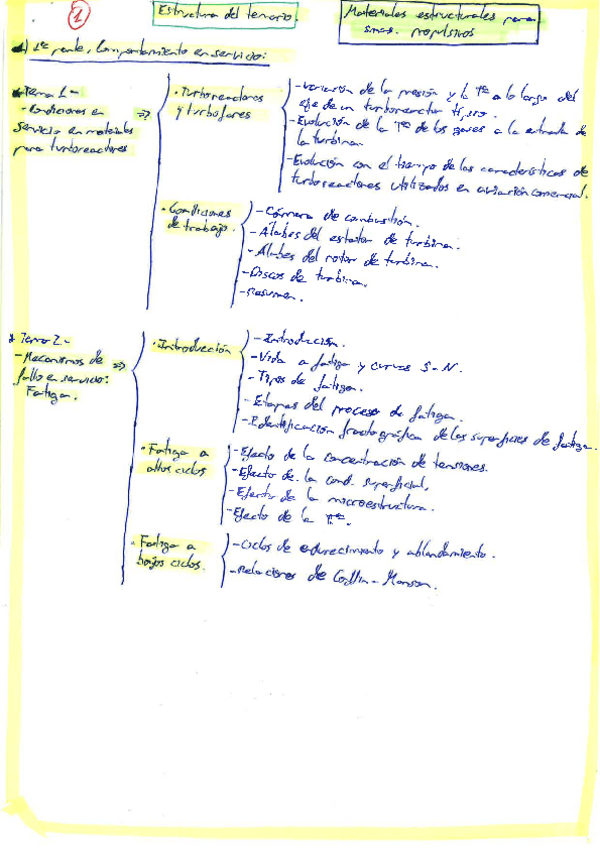 1
Estructura del temario.
Materiales estructurales para
smas. propulsivos
1ª parte, Comportamiento en servicio:
Tema 1.-
- Condiciones en
servicio en materiales
para turborreactores
⇒
· Turborreactores
y turbofanes
- Variación de la presión y la Tª a lo largo del
eje de un turborreactor
- Evolución de la Tª de los gases a la entrada de
la turbina.
- Evolución con el tiempo de las características de
turborreactores utilizados en aviación comercial.
· Condiciones
de trabajo.
- Cámara de combustión.
- Álabes del estator de turbina.
- Álabes del rotor de turbina.
- Discos de turbina.
- Resumen.
Tema 2.-
- Mecanismos de
fallo en servicio:
Fatiga.
⇒
· Introducción
- Introducción.
- Vida a fatiga y curvas S-N.
- Tipos de fatiga.
- Etapas del proceso de fatiga.
- Identificación fractográfica de las superficies de fatiga.
· Fatiga a
altos ciclos
- Efecto de la concentración de tensiones.
- Efecto de la cond. superficial.
- Efecto de la microestructura.
- Efecto de la Tª.
· Fatiga a
bajos ciclos.
- Ciclos de endurecimiento y ablandamiento.
- Relaciones de Coffin-Manson.